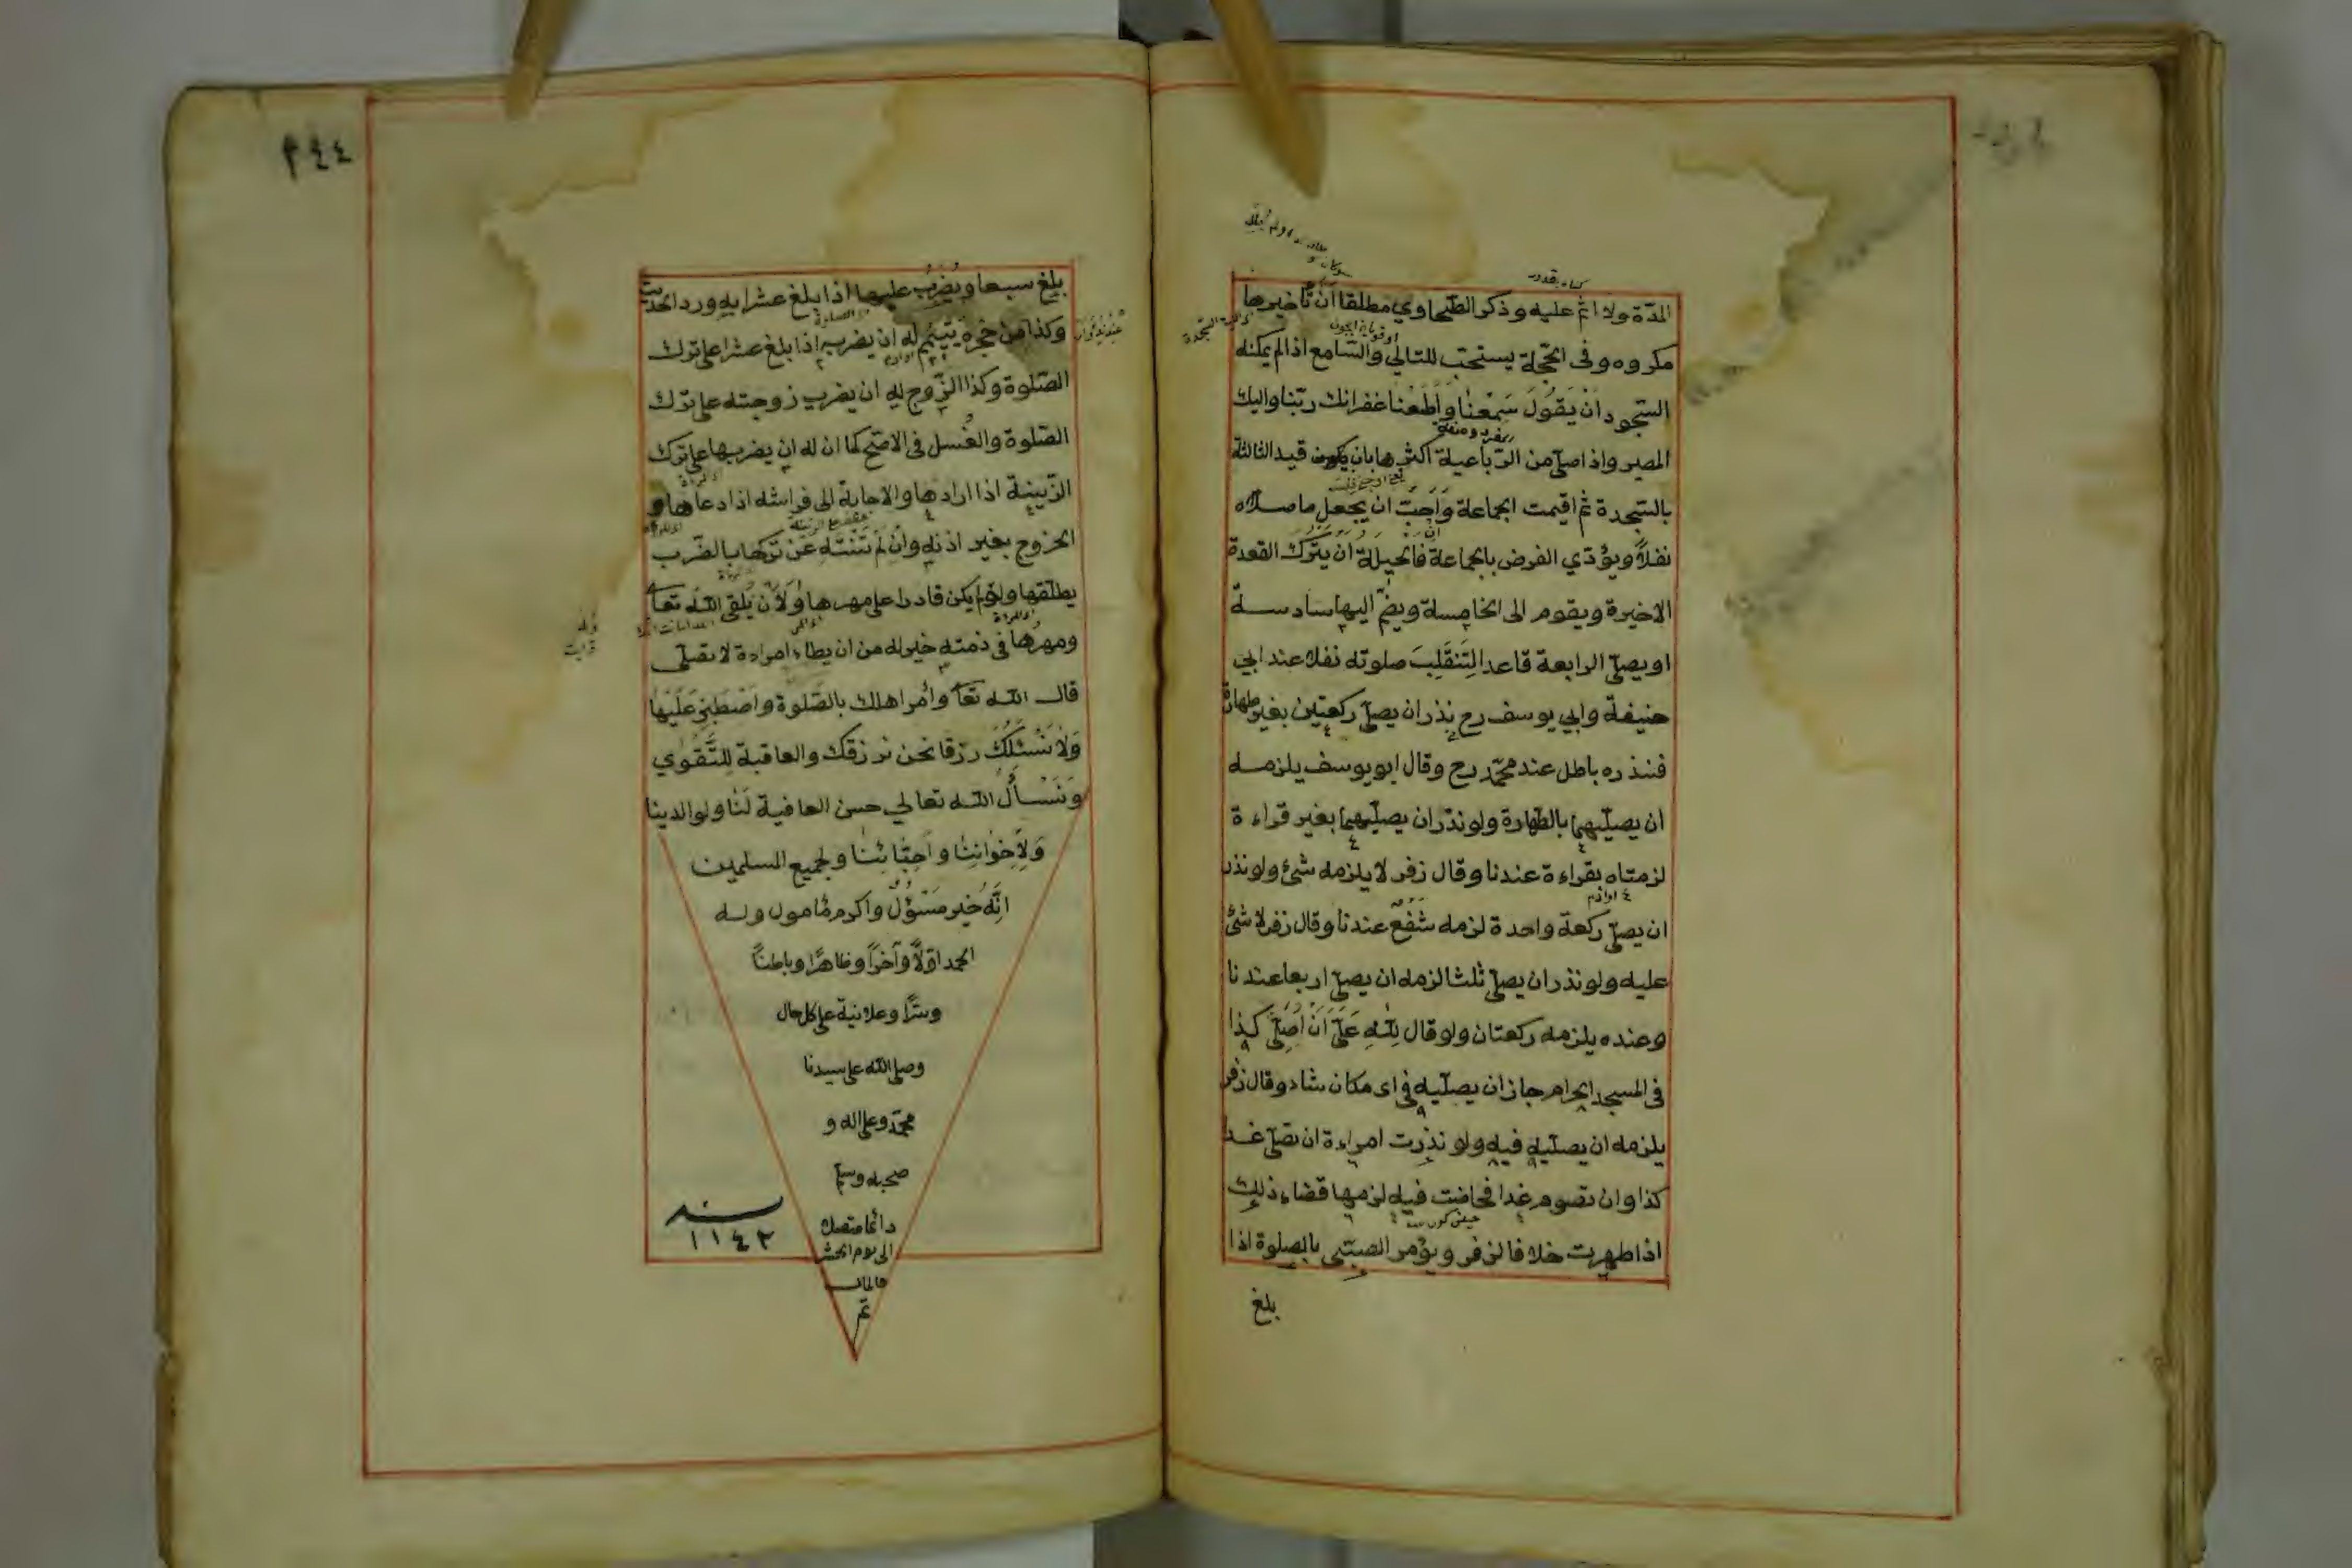 المدّة ولا اثم عليه وذكر الطّحاوي مطلقا انّ تأخيرها
مكروه وفى الحجّة يستحبّ للتالي والسّامع اذا لم يمكنه
السّجود ان يَقُولَ سَمِعْنا واَطَعْنا غفرانك ربّنا واليك
المصير واذا صلّى من الرّباعيلة اكثرها بان يكون قيد الثالثة
بالسّجدة ثم اقيمت الجماعة وَاَحَبَّ ان يجعل ما صلاه
نفلاً ويؤدّي الفرض بالجماعة فالحيلة ان يترك القعدة
الاخيرة ويقوم الى الخامسة ويضمّ اليها سادسة
او يصلّى الرابعة قاعدا لِتَنقَلِبَ صلوته نفلا عند ابي
حنيفة وابي يوسف رح نذر ان يصلّى ركعتين بغير طهارة
فنذره باطل عند محمّد رح وقال ابو يوسف يلزمه
ان يصلّيهما بالطّهارة ولو نذر ان يصلّيهما بغير قراءة
لزمتاه بقراءة عندنا وقال زفر لا يلزمه شئ ولو نذر
ان يصلّى ركعة واحدة لزمه شفع عندنا وقال زفر لا شئ
عليه ولو نذر ان يصلّى ثلثا لزمه ان يصلّى اربعا عندنا
وعنده يلزمه ركعتان ولو قال لِلّٰهِ عَلَىَّ اَنْ اُصَلِّىَ كذا
فى المسجد الحرام جاز ان يصلّيه فى اى مكان شاء وقال زفر
يلزمه ان يصلّيه فيه ولو نذرت امراءة ان تصلّى غدا
كذا وان تصوم غدا فحاضت فيه لزمها قضاء ذلك
اذا طهرت خلافا لزفر ويؤمر الصّبىّ بالصلوة اذا
بلغ
٢٤٤
بلغ سبعا ويُضرَبُ عليها اذا بلغ عشرا به ورد الحديث
وكذا من حجره يتيم له ان يضربه اذا بلغ عشرا على ترك
الصّلوة وكذا الزّوج له ان يضرب زوجته على ترك
الصّلوة والغُسل فى الاصّح كما ان له ان يضربها على ترك
الزّينة اذا ارادها والاجابة الى فراشه اذا دعاها و
الخروج بغير اذنه وان لم تَنْتَهِ عن تركها بالضّرب
يطلّقها ولو لم يكن قادرا على مهرها ولاَن يلقى الله تعا
ومهرها فى ذمته خير له من ان يطاء امراءة لا تصلّى
قال الله تعا وأمر اهلك بالصّلوة واصْطَبِرْ عَلَيْها
وَلا نَسْئَلُكَ رزقا نحن نرزقك والعاقبة لِلتَّقْوٰي
وَنَسْأَلُ الله تعالي حسن العافية لَنا ولوالدينا
وَلِاِخْوانِنا وَاَحِبّائِنا ولجميع المسلمين
انَّه خير مَسْؤُل واكرم مأمول وله
الحمد اوّلاً وآخراً وظاهراً وباطناً
وسرّاً وعلانية على كل حال
وصلى الله على سيدنا
محمّد وعلى اله و
صحبه وسلم
دائما متصلا
الى يوم الحشر
تم
سنه
١١٤٢